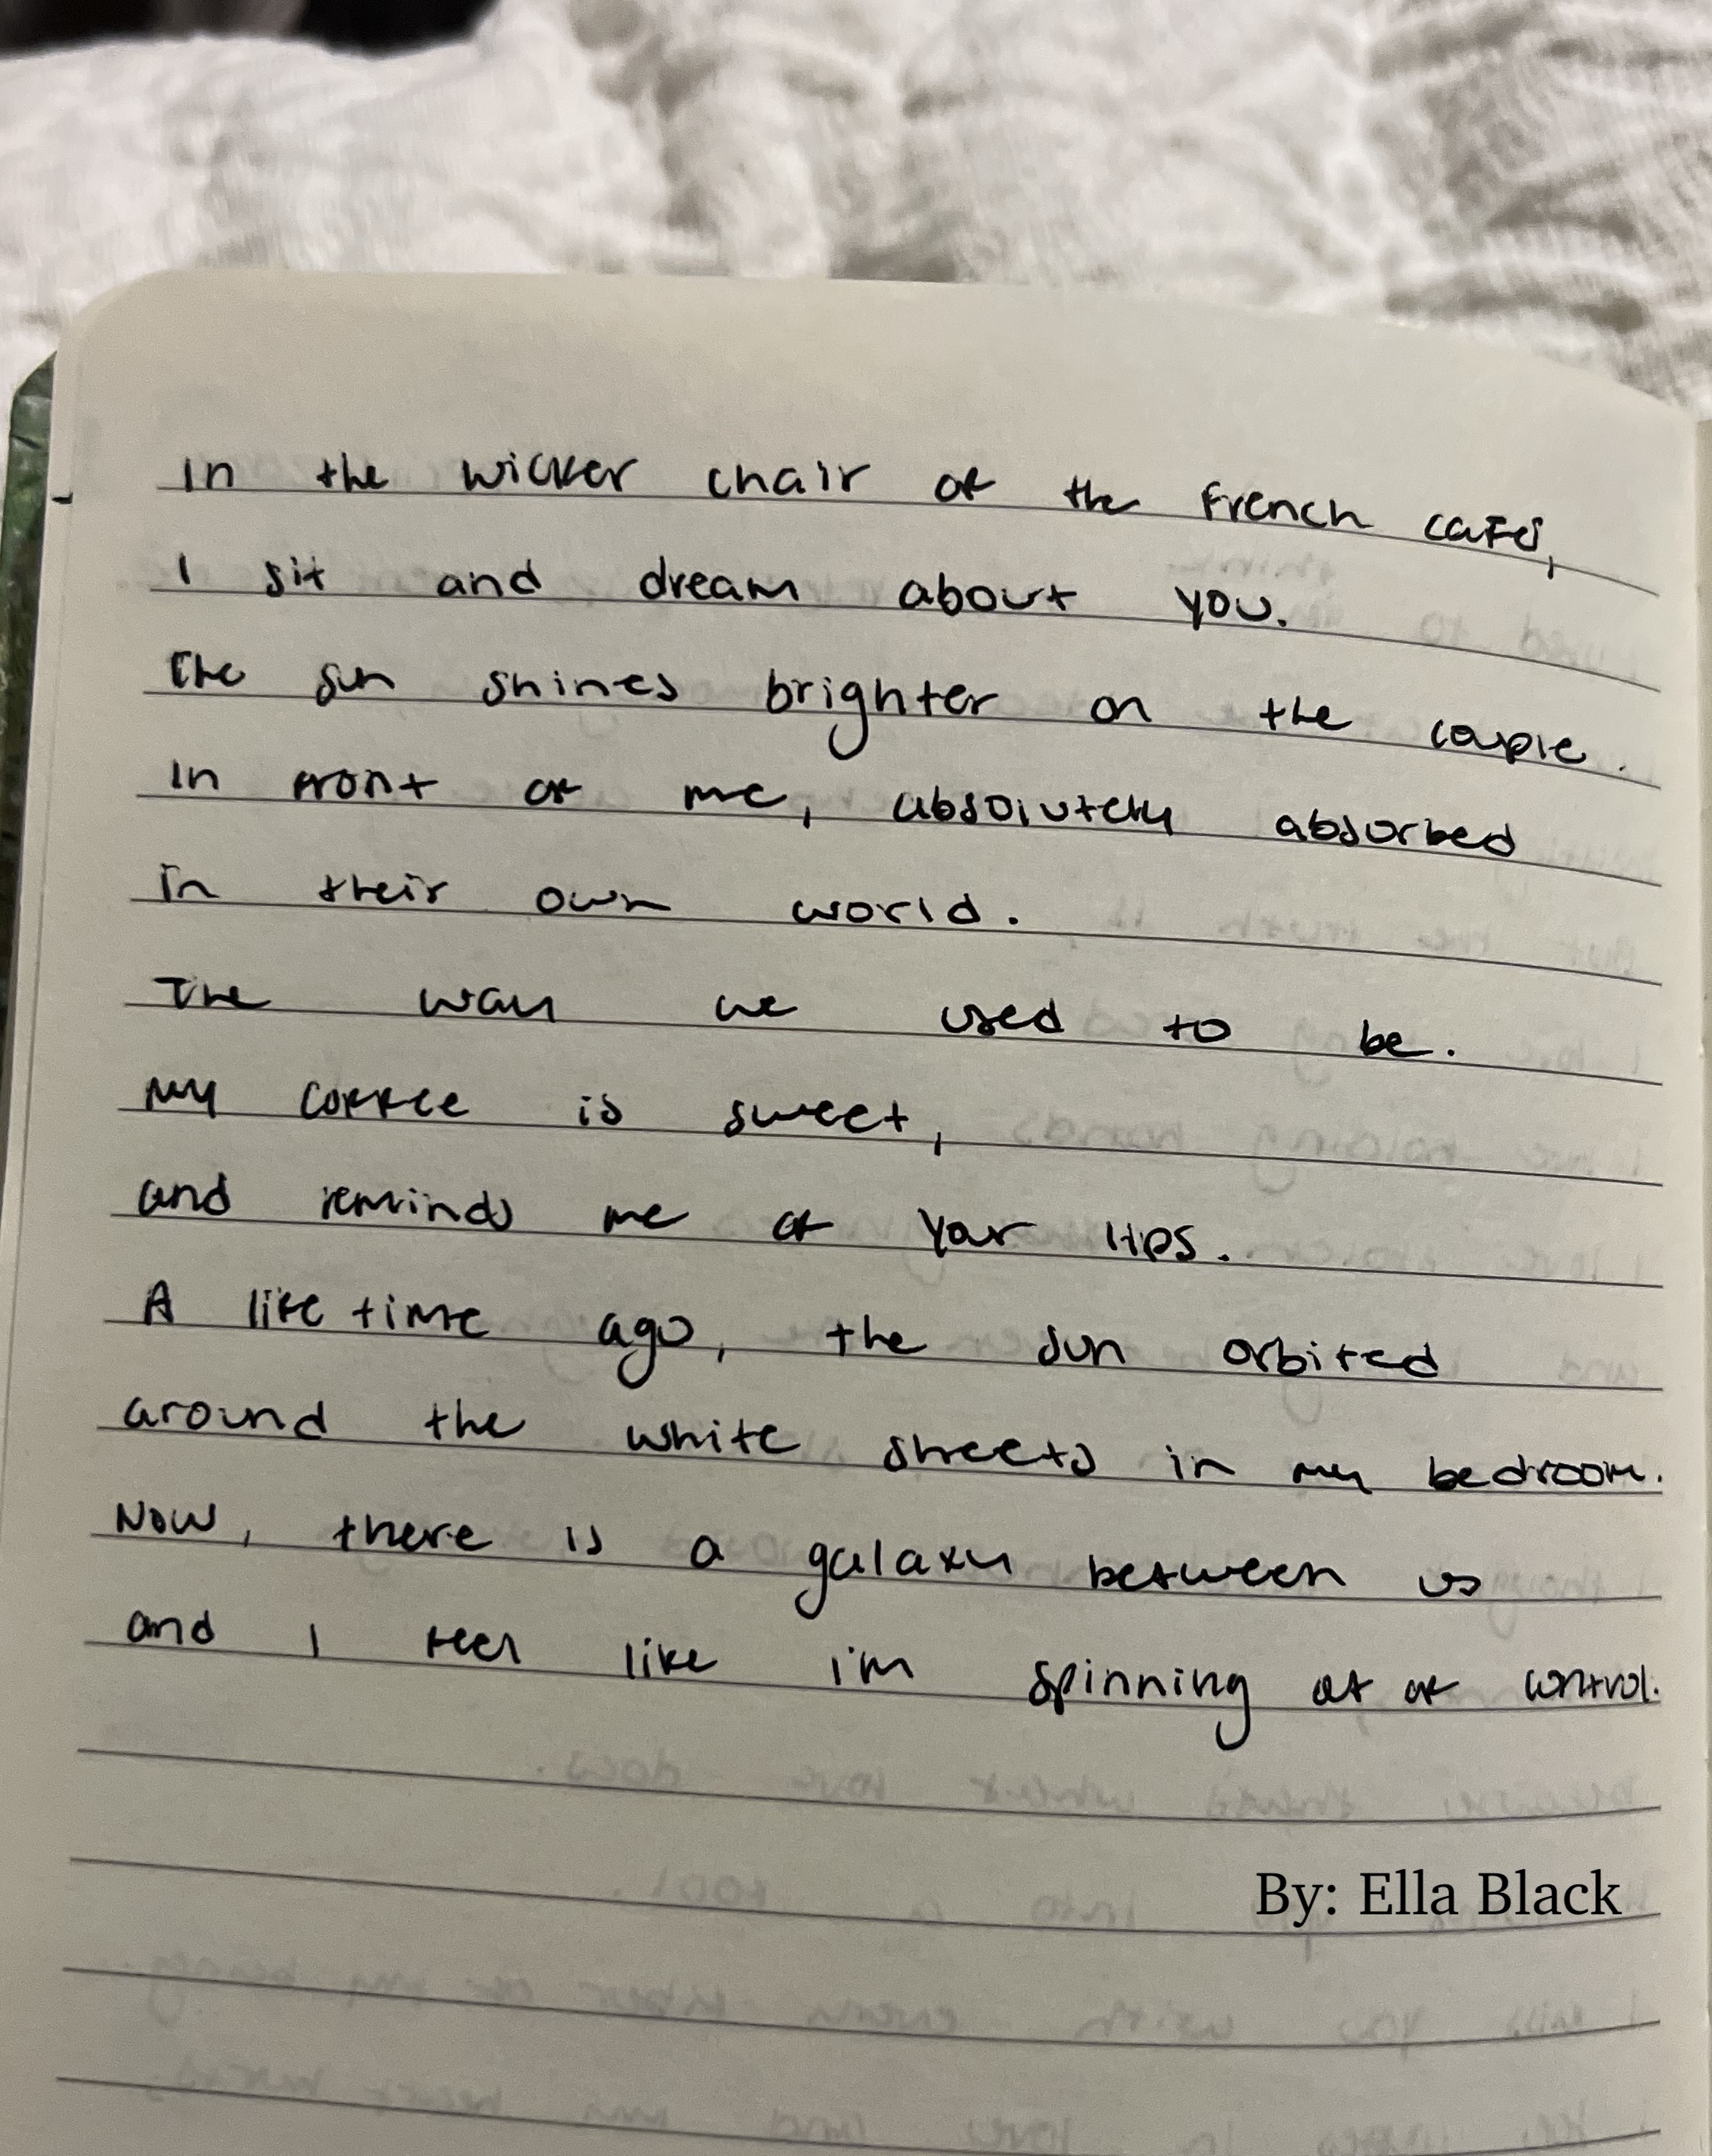 In the wicker chair of the French café,
I sit and dream about you.
The sun shines brighter on the couple.
In front of me, absolutely absorbed
in their own world.
The way we used to be.
My coffee is sweet,
and reminds me of your lips.
A life time ago, the sun orbited
around the white sheets in my bedroom.
Now, there is a galaxy between us
and I feel like i'm spinning out of control.
By: Ella Black